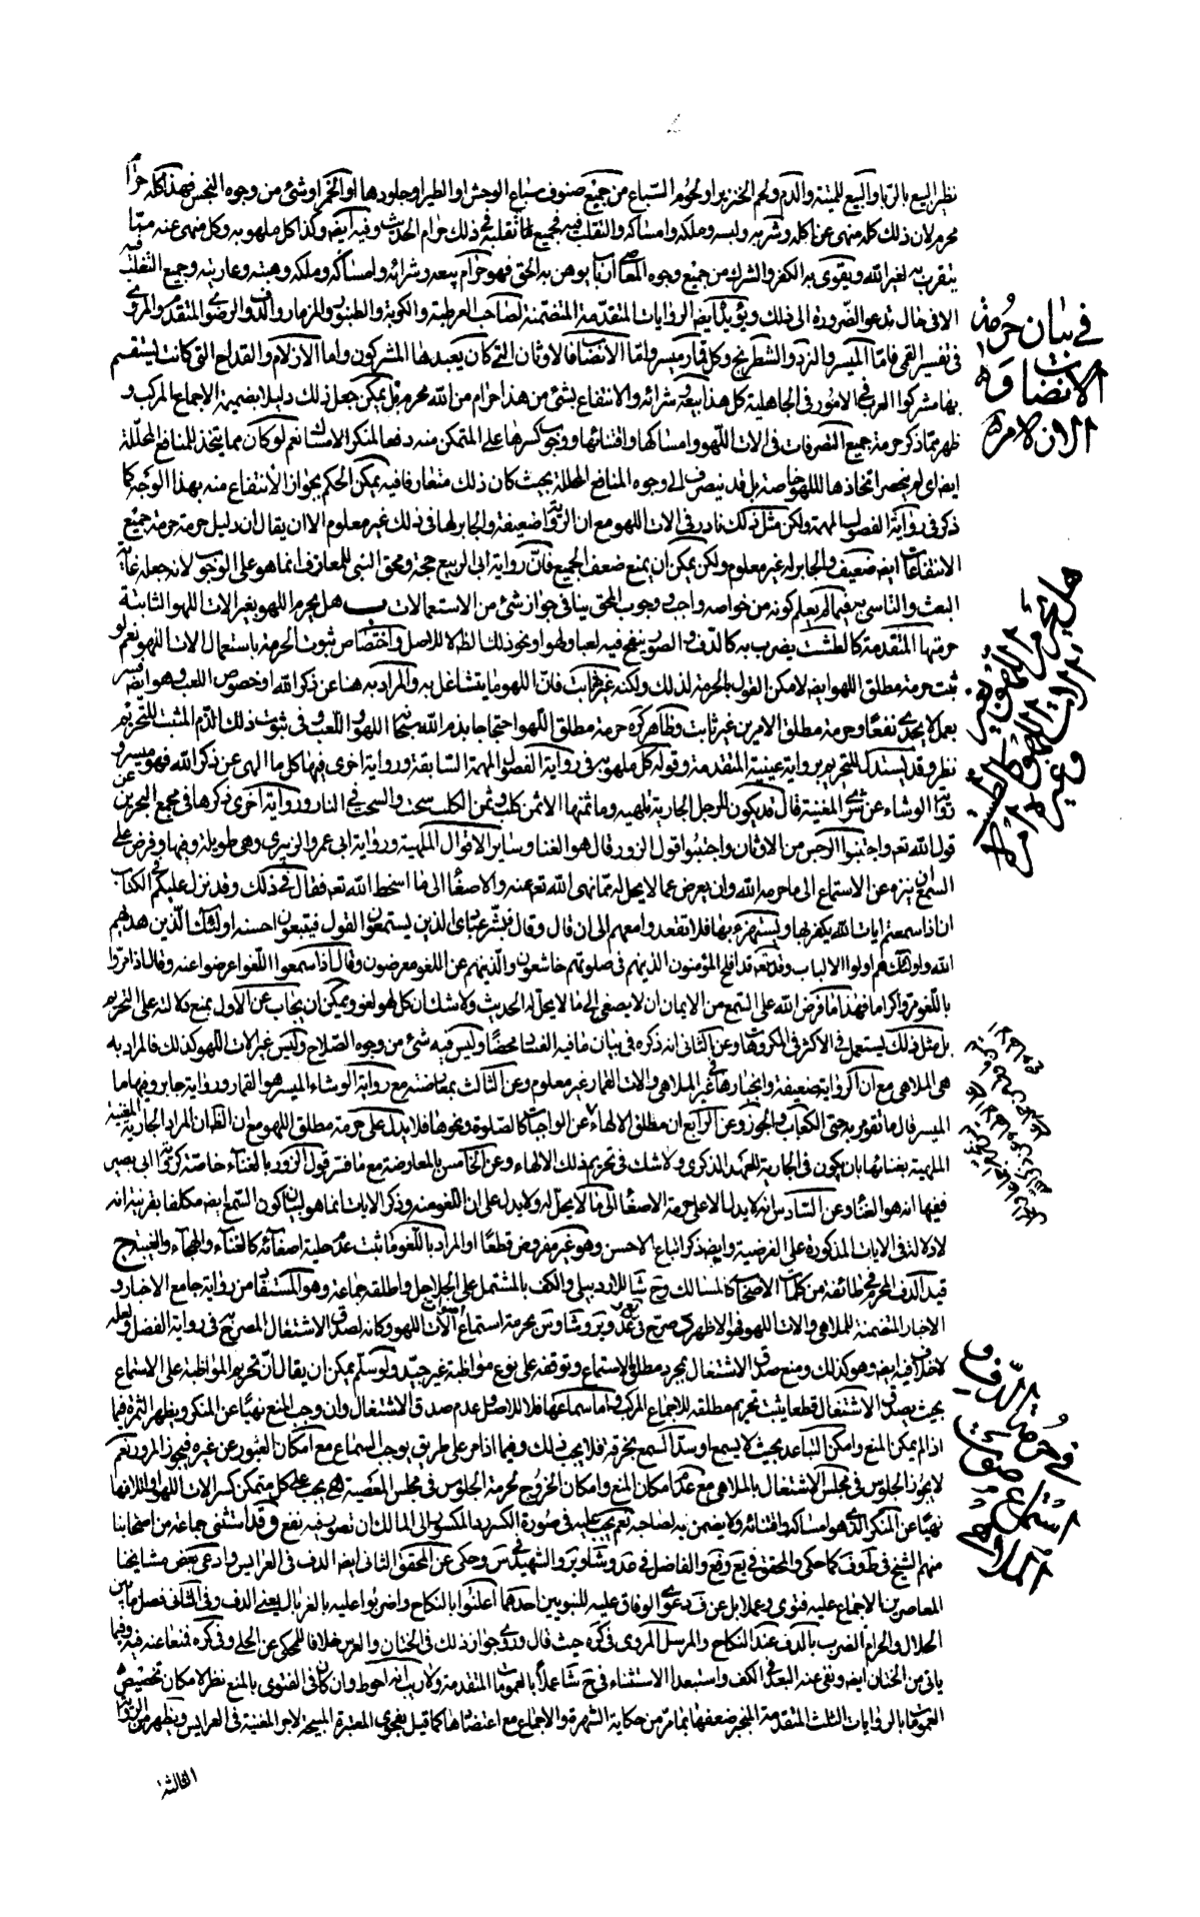 نظير البيع بالربا والبيع للميتة والدم ولحم الخنزير او لحوم السباع من جميع صنوف سباع الوحش او الطير او جلودها او الخمر او شئ من وجوه النجس فهذا كله حرام
محرم لان ذلك كله منهى عن اكله وشربه ولبسه وملكه وامساكه والتقلب فيه فجميع تقلبه فى ذلك حرام الحديث وفيه ايضه وكذا كل ملهو به وكل منهى عنه مما
يتقرب به لغير الله ويقوى به الكفر والشرك من جميع وجوه المعاصى او باب يوهن به الحق فهو حرام بيعه وشرائه وامساكه وملكه وهبته وعاريته وجميع التقلب فيه
الا فى حال تدعو الضرورة الى ذلك ويؤيده ايضه الروايات المتقدمة المتضمنة لصاحب العرطبة والكوبة والطنبور والمزمار والدف والرضوى المتقدم والمروى
فى تفسير القمى فامّا الميسر والنرد والشطرنج وكل قمار ميسر وامّا الانصاب فالاوثان التى كان يعبدها المشركون واما الازلام والقداح التى كانت يستقسم
بها مشركوا العرب فى الامور فى الجاهلية كل هذا بيعه وشرائه والانتفاع بشئ من هذا حرام من الله محرم بل يمكن جعل ذلك دليلا بضميمة الاجماع المركب و
ظهر مما ذكر حرمة جميع التصرفات فى الات اللهو وامساكها واقتنائها ووجوب كسرها على المتمكن منه دفعا لمنكر الامساك نعم لو كان مما يتخذ للمنافع المحللة
ايضه اى لم ينحصر اتخاذها للهو خاصة بل قد ينصرف الى وجوه المنافع المحللة بحيث كان ذلك متعارفا فيه يمكن الحكم بجواز الانتفاع منه بهذا الوجه كما
ذكر فى رواية الفصول المهمة ولكن مثل ذلك نادر فى الات اللهو مع ان الرواية ضعيفة والجابر لها فى ذلك غير معلوم الا ان يقال ان دليل حرمة حرمة جميع
الانتفاعات ايضه ضعيف والجابر له غير معلوم ولكن يمكن ان يمنع ضعف الجميع فانّ رواية ابى الربيع حجة ومحق النبى للمعازف انما هو على الوجوب لانه جعله غاية
البعث والتاسى به فيما لم يعلم كونه من خواصه واجب ووجوب المحق ينافى جواز شئ من الاستعمالات ب هل يحرم اللهو بغير الات اللهو الثابتة
حرمتها المتقدمة كالطشت يضرب به كالدف والصوت ينفخ فيه لعبا ولهوا ونحو ذلك الظ لا للاصل واختصاص ثبوت الحرمة باستعمال الات اللهو نعم لو
ثبت حرمة مطلق اللهو ايضه لامكن القول بالحرمة لذلك ولكنه غير ثابت فانّ اللهو ما يتشاغل به والمراد به هنا عن ذكر الله او خصوص اللعب وهو ايضه فسر
بعمل لا يجدى نفعا وحرمة مطلق الامرين غير ثابت وظاهر كره حرمة مطلق اللهو احتجاجا بذم الله سبحانه اللهو واللعب وفى ثبوت ذلك الذم المثبت للتحريم
نظر وقد يستدل للتحريم برواية عنبسة المتقدمة وقوله كل ملهو به فى رواية الفصول المهمة السابقة ورواية اخرى فيها كل ما الهى عن ذكر الله فهو ميسر و
رواية الوشاء عن شرى المغنية قال قد يكون للرجل الجارية تلهيه وما ثمنها الا ثمن كلب وثمن الكلب سحت والسحت فى النار ورواية اخرى ذكرها فى مجمع البحرين عن
قول الله تعه واجتنبوا الرجس من الاوثان واجتنبوا قول الزور قال هو الغنا وساير الاقوال الملهية ورواية ابى عمرو الزبيرى وهى طويلة وفيها وفرض على
السمع ان يتنزه عن الاستماع الى ما حرمه الله وان يعرض عما لا يحل له مما نهى الله تعه عنه والاصغاء الى ما اسخط الله تعه فقال فى ذلك وقد نزل عليكم فى الكتاب
ان اذا سمعتم ايات الله يكفر بها ويستهزء بها فلا تقعدوا معهم الى ان قال وقال فبشر عبادى الذين يستمعون القول فيتبعون احسنه اولئك الذين هديهم
الله واولئك هم اولوا الالباب وقال تعه قد افلح المؤمنون الذينهم فى صلوتهم خاشعون والذينهم عن اللغو معرضون وقال اذا سمعوا اللغو اعرضوا عنه وقال اذا مروا
باللغو مروا كراما فهذا ما فرض الله على السمع من الايمان ان لا يصغى الى ما لا يحل له الحديث ولا شك ان كل لهو لغو ويمكن ان يجاب عن الاول بمنع دلالته على التحريم
بل مثل ذلك يستعمل فى الاكثر فى المكروهات وعن الثانى انه ذكره فى بيان ما فيه الفساد محضا وليس فيه شئ من وجوه الصلاح وليس غير الات اللهو كذلك فالمراد به
هى الملاهى مع ان الرواية ضعيفة وانجبارها فى غير الملاهى والات القمار غير معلوم وعن الثالث بمعارضته مع رواية الوشاء الميسر هو القمار ورواية جابر وفيها ما
الميسر قال ما تقومر به حتى الكعاب والجوز وعن الرابع ان مطلق الالهاء عن الواجبات كالصلوة ونحوها فلا يدل على حرمة مطلق اللهو مع ان الظ ان المراد الجارية المغنية
الملهية بغنائها بان يكون فى الجارية للعهد الذكرى ولا شك فى تحريم ذلك الالهاء وعن الخامس بالمعارضة مع ما فسر قول الزور بالغناء خاصة كرواية ابى بصير
ففيها انه هو الغناء وعن السادس انه لا يدل الا على حرمة الاصغاء الى ما لا يحل له ولا يدل على ان اللغو منه وذكر الايات انما هو لبيان كون السمع ايضه مكلفا بقرينة انه
لا دلالة فى الايات المذكورة على الفرضية وايضه ذكر اتباع الاحسن وهو غير مفروض قطعا او المراد باللغو ما ثبت عدم حلية اصغائه كالغناء والهجاء والغيبة ج
قيد الدف المحرم فى طائفة من كلمات الاصحاب كالمسالك وشا للاردبيلى والكف بالمشتمل على الجلاجل واطلقه جماعة وهو المستفا من رواية جامع الاخبار و
الاخبار المتضمنة للملاهى والات اللهو فهو الاظهر د صرح فى عد وير وشاوس بحرمة استماع اصوات الات اللهو وكانه لصدق الاشتغال المصرح به فى رواية الفضل ولعله
لا خلاف فيه ايضه وهو كذلك ومنع صدق الاشتغال بمجرد مطلق الاستماع وتوقفه على نوع مواظبة غير جيد ولو سلم يمكن ان يقال انّ تحريم المواظبة على الاستماع
بحيث يصدق الاشتغال قطعا يثبت تحريم مطلقه للاجماع المركب واما سماعها فلا للاصل وعدم صدق الاشتغال وان وجب المنع نهيا عن المنكر ويظهر الثمرة فيما
اذا لم يمكن المنع وامكن التباعد بحيث لا يسمع او سد السمع بخرقة فلا يجب ذلك وفيما اذا مر على طريق يوجب السماع مع امكان العبور عن غيره فيجوز المرور نعم
لا يجوز الجلوس فى مجلس الاشتغال بالملاهى مع عدم امكان المنع وامكان الخروج لحرمة الجلوس فى مجلس المعصية ه يجب على كل متمكن كسر الات اللهو او اتلافها
نهيا عن المنكر الذى هو امساكه واقتنائه ولا يضمن به لصاحبه نعم يجب عليه فى صورة الكسر رد المكسور الى المالك ان تصور فيه نفع و قد استثنى جماعة من اصحابنا
منهم الشيخ فى ط وف كما حكى والمحقق فى يع وفع والفاضل فى عد وشا وير والشهيد فى س وحكى عن المحقق الثانى ايضه الدف فى العرايس وادعى بعض مشايخنا
المعاصرين الاجماع عليه فتوى وعملا بل عن ف دعوى الوفاق عليه للنبويين احدهما اعلنوا بالنكاح واضربوا عليه بالغربال يعنى الدف وفى الثانى فصل ما بين
الحلال والحرام الضرب بالدف عند النكاح والمرسل المروى فى كره حيث قال وروى جواز ذلك فى الختان والعرس خلافا للمحكى عن الحلى وفى كره فمنعا عنه فيه وفيما
ياتى من الختان ايضه ونفى عنه البعد فى الكف واستبعد الاستثناء فى شا عملا بالعمومات المتقدمة ولا ريب انه احوط وان كان فى الفتوى بالمنع نظر لامكان تخصيص
العمومات بالروايات الثلث المتقدمة المنجبر ضعفها بما مر من حكاية الشهرة والاجماع مع اعتضادها كما قيل بفحوى المعتبرة المبيحة لاجر المغنية فى العرايس ويظهر من الرواية
الثالثة
فى بيان حرمة
الانصاب و
الازلام
هل يحرم اللهو بغير
الات اللهو كالطشت
وغيره ام لا
فى حرمة الدف و
استماع صوت
الملاهى